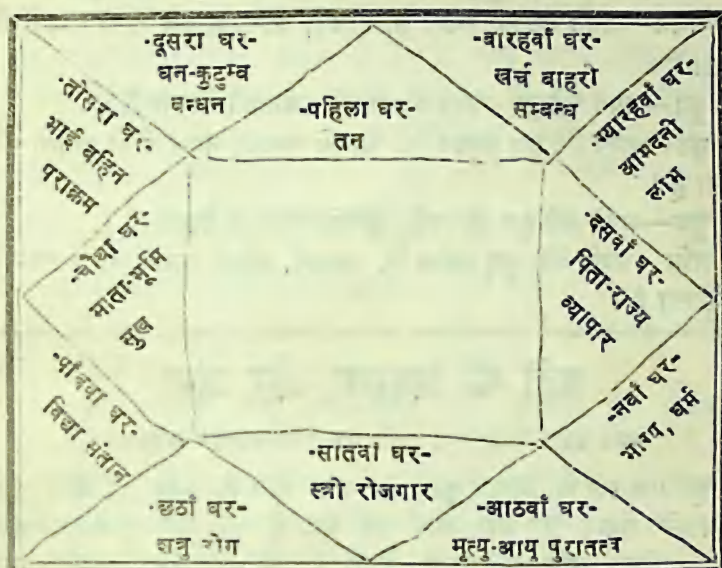 -दूसरा घर-
धन-कुटुम्ब
बन्धन
-बारहवाँ घर-
खर्च बाहरी
सम्बन्ध
-तीसरा घर-
भाई बहिन
पराक्रम
-पहिला घर-
तन
-ग्यारहवाँ घर-
आमदनी
लाभ
-चौथा घर-
माता-भूमि
सुख
-दसवाँ घर-
पिता-राज्य
व्यापार
-पाँचवा घर-
विद्या संतान
-नवाँ घर-
भाग्य, धर्म
-सातवाँ घर-
स्त्री रोजगार
-छठाँ घर-
शत्रु रोग
-आठवाँ घर-
मृत्यु-आयु पुरातत्व